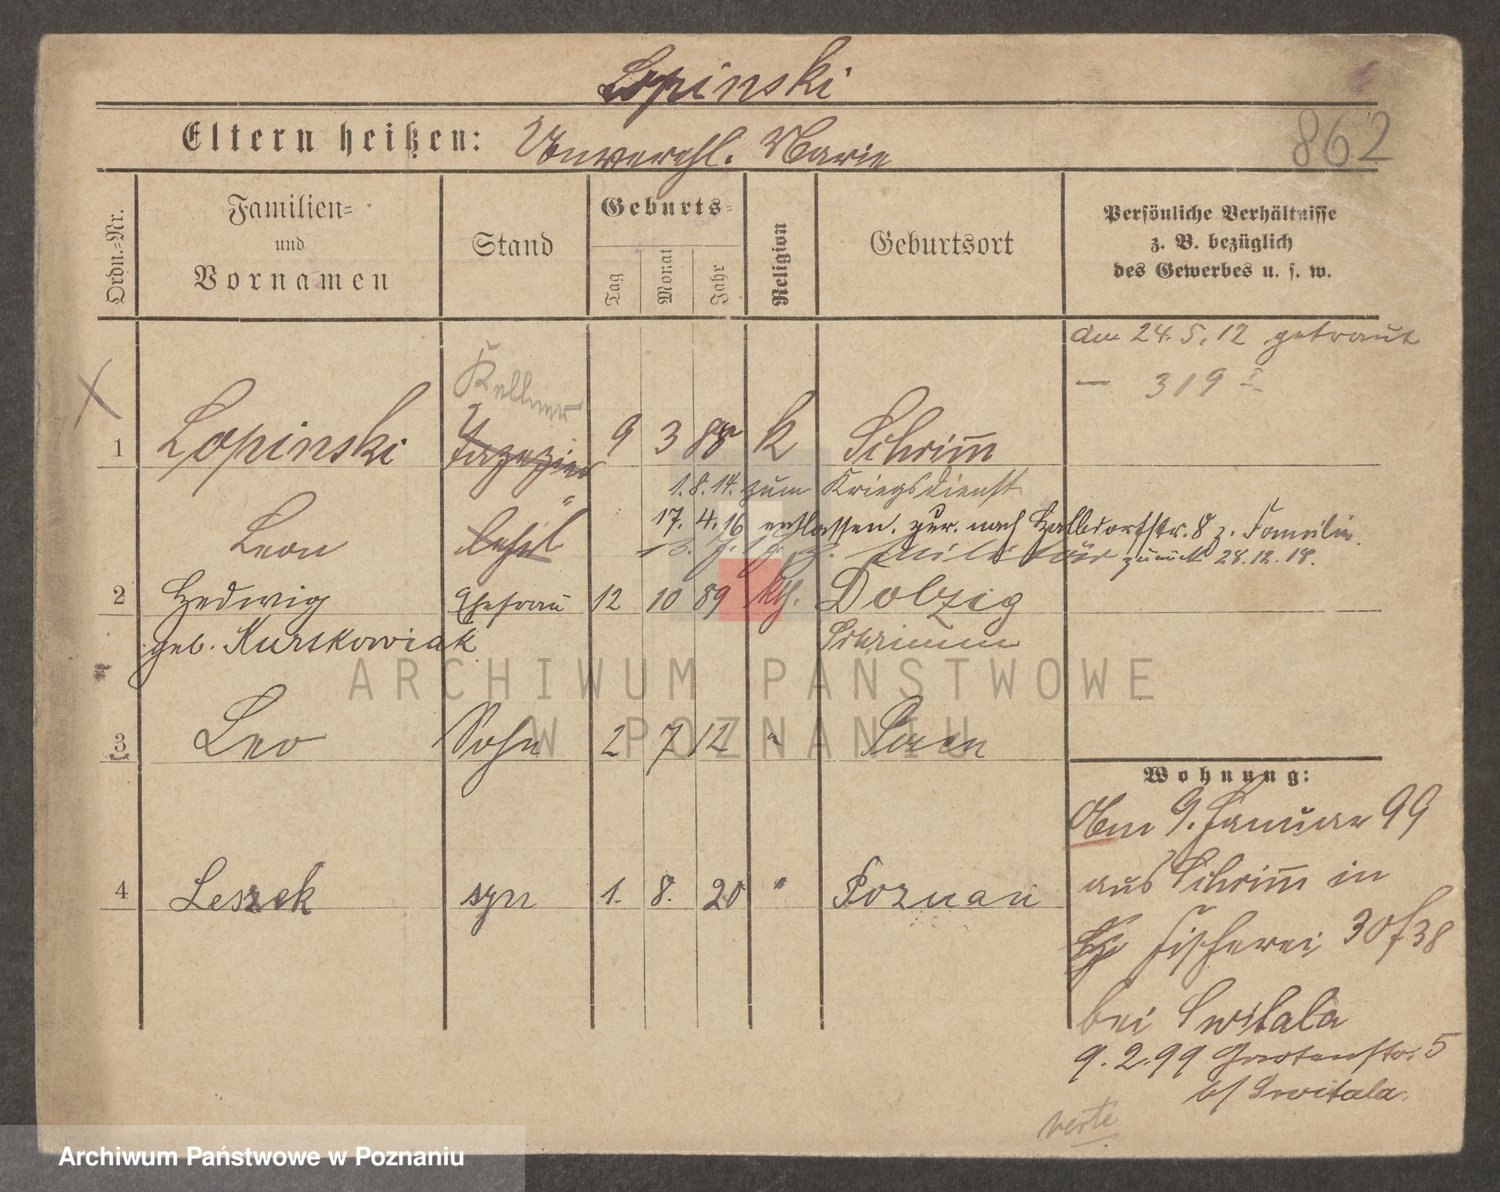 Lopinski
Eltern heißen: Unverehl. Marie
862
Ordn.=Nr.
Familien=
und
Vornamen
Stand
Geburts=
Tag
Monat
Jahr
Religion
Geburtsort
Persönliche Verhältnisse
z. B. bezüglich
des Gewerbes u. s. w.
am 24.5.12 getraut
— 319
Kellner
1 Lopinski Tapezier 9 3 88 k Schrim̅
1.8.14. zum Kriegsdienst
17. 4. 16 entlassen. zur. nach Halbdorfstr. 8 z. Familie.
Leon
zurück 28.12.18.
2 Hedwig Ehefrau 12 10 89 kth. Dolzig
geb. Kurskowiak Schrimm
3 Leo Sohn 2 7 12 " Posen
4 Leszek syn 1. 8. 20 " Poznań
Wohnung:
Am 9. Januar 99
aus Schrim̅ in
Fischerei 30/38
bei Switala
9.2.99 Gartenstr. 5
b/ Switala.
verte
ARCHIWUM PAŃSTWOWE
W POZNANIU
Archiwum Państwowe w Poznaniu